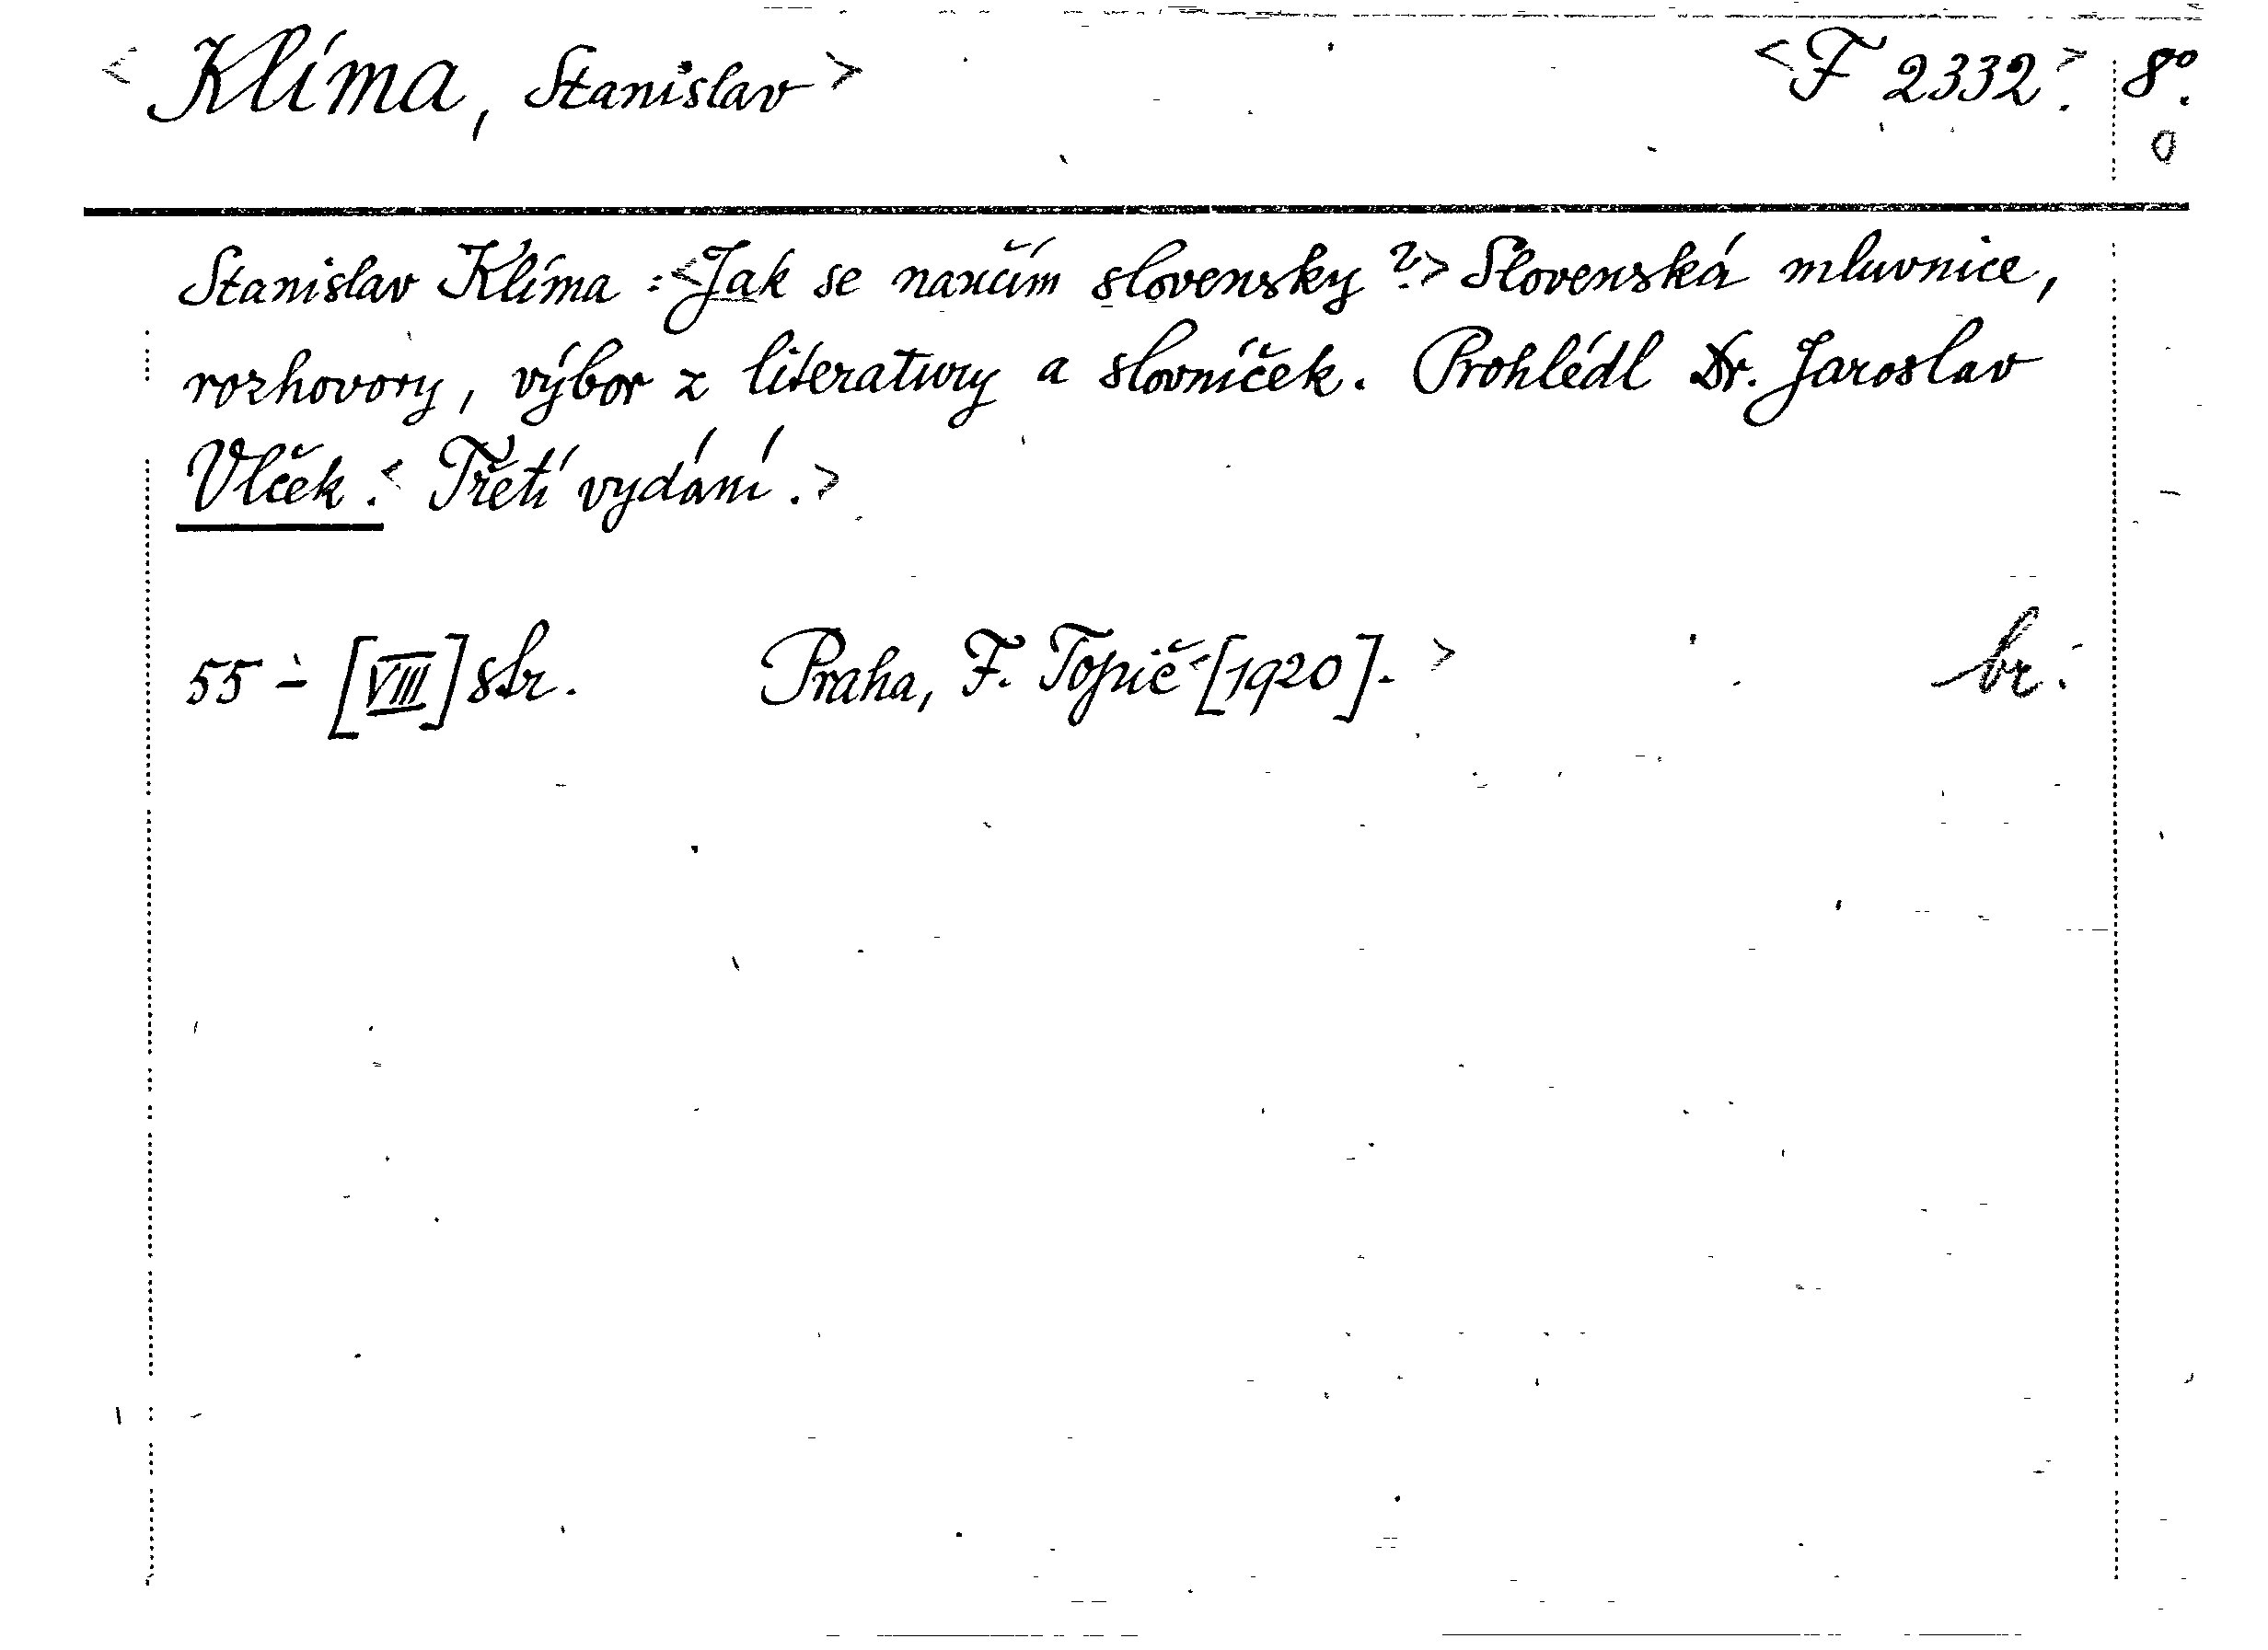 < Klíma, Stanislav > <F 2332.> 8°.
0
Stanislav Klíma : <Jak se naučím slovensky ?> Slovenská mluvnice,
rozhovory, výbor z literatury a slovníček. Prohlédl Dr. Jaroslav
Vlček. < Třetí vydání. >
55 - [VIII] str. Praha, F. Topič < [1920]. > br.